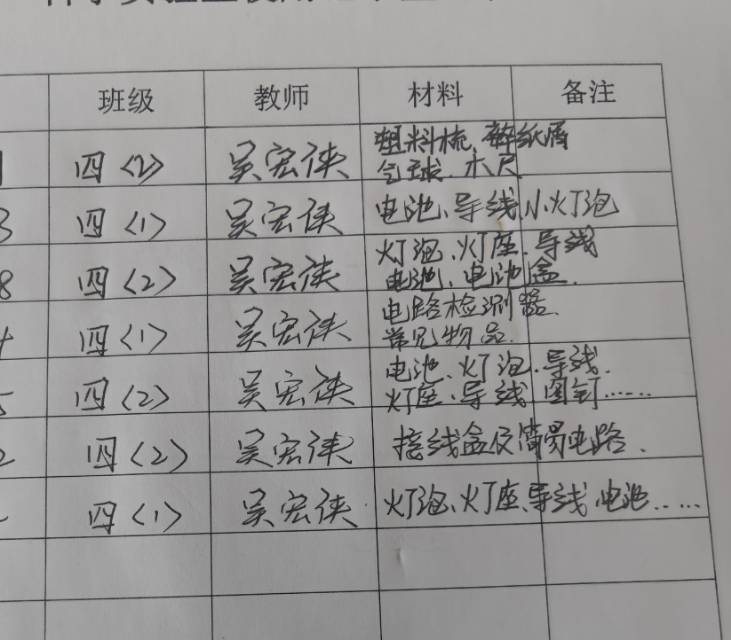 班级 教师 材料 备注
四(2) 吴宏侠 塑料梳、碎纸屑
气球、木尺
3 四(1) 吴宏侠 电池、导线、小灯泡
8 四(2) 吴宏侠 灯泡、灯座、导线
电池、电池盒.
四(1) 吴宏侠 电路检测器.
常见物品.
电池、灯泡、导线.
5 四(2) 吴宏侠 灯座、导线 图钉……
2 四(2) 吴宏侠 接线盒及简易电路.
四(1) 吴宏侠 灯泡、灯座、导线、电池……